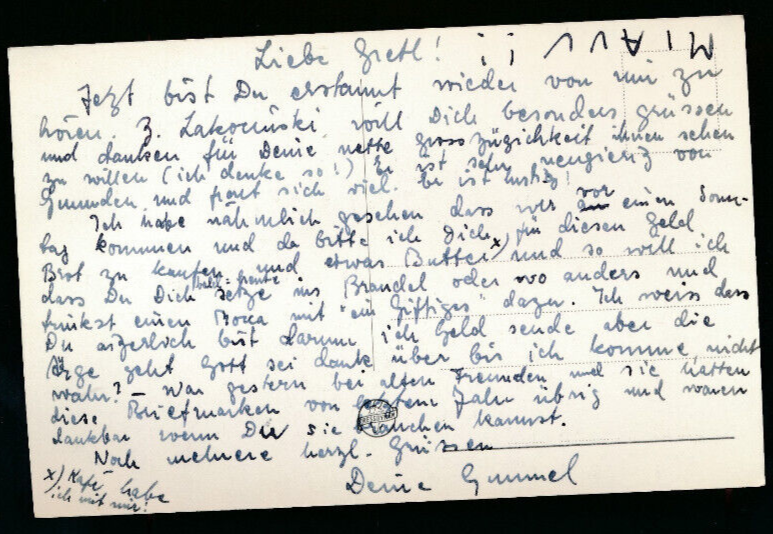 Liebe Gretl! MIAU !!
Jetzt bist Du erstaunt wieder von mir zu
hören. Z. Lakocinski, will Dich besonders grüssen
und danken für Deine nette grosszügichkeit ihnen sehen
zu willen (ich denke so!) Er ist sehr neugierig von
Gmunden und freut sich viel. Er ist lustig!
Ich habe nähmlich gesehen dass wir vor einen Sonn-
tag kommen und da bitte ich Dich x) für diesen Geld
Brot zu kaufen und etwas Butter und so will ich
dass Du Dich setze ins Brandel oder wo anders und
trinkst einen Mocca mit "ein Giftiges" dazu. Ich weiss dass
Du aigerlich bist darum ich Geld sende aber die
Ärge geht Gott sei dank über bis ich komme, nicht
wahr? – War gestern bei alten Freunden und sie hatten
diese Briefmarken von letztem Jahr übrig und waren
dankbar wenn Du sie brauchen kannst.
Noch mehrere herzl. Grüssen
Deine Gummel
x) Kafe habe
ich mit mir!